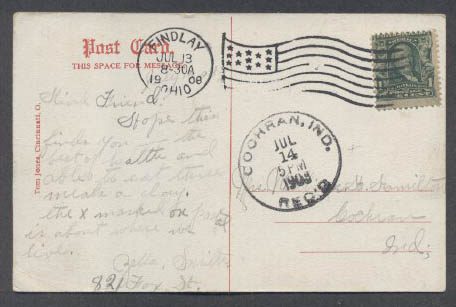 Post Card.
THIS SPACE FOR MESSAGE
FINDLAY
JUL 13
8-30A
1908
OHIO
Kind Friend:
Hope this
finds you in the
best of health and
able to eat three
meals a day.
the x marked on
is about where we
live.
Smith
821 Fox. St.
Tom Jones, Cincinnati, O.
COCHRAN, IND.
JUL
14
5PM
1908
REC'D
Hamilton
Cochran
Ind.